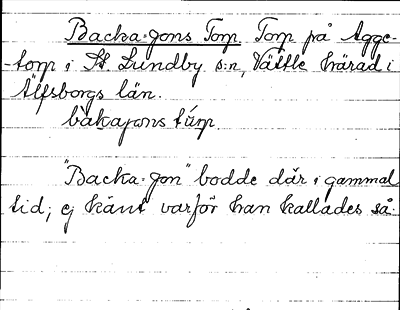 Backa-Jons Torp. Torp på Agge-
-torp i St Lundby s:n, Vättle härad i
Älfsborgs län.
bàkajons tǻrp.
"Backa-Jon" bodde där i gammal
tid; ej känt varför han kallades så.